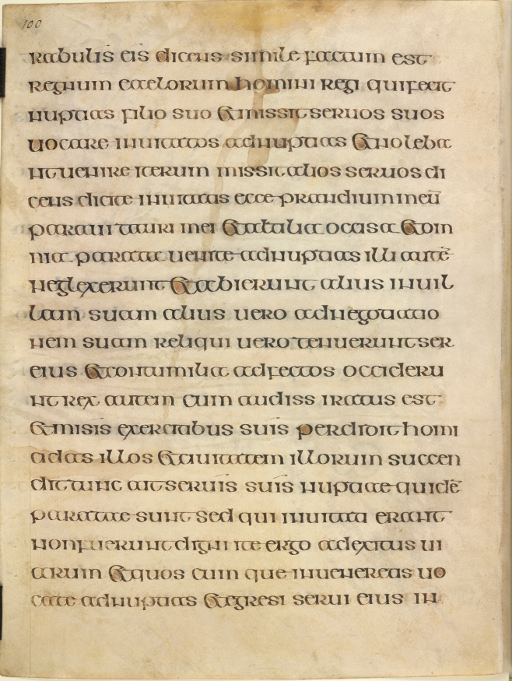 100
rabulis eis dicens simile factum est
regnum caelorum homini regi qui fecit
nuptias filio suo & missit seruos suos
uocare inuitatos ad nuptias & noleba
nt uenire iterum missit alios seruos di
cens dicite inuitatis ecce prandium meū
paraui tauri mei & altalia occisa & om
nia parata uenite ad nuptias illi autē
neglexerunt & abierunt alius in uil
lam suam alius uero ad negotiatio
nem suam reliqui uero tenuerunt ser
eius & contumilia adfectos occideru
nt rex autem cum audiss iratus est
& misis exercitabus suis perdidit homi
cidas illos & ciuitatem illorum succen
dit tunc ait seruis suis nuptiae quidē
paratae sunt sed qui inuitati erant
non fuerunt digni ite ergo ad exitus ui
arum & quos cum que inueneretis uo
cate ad nuptias & egresi serui eius in